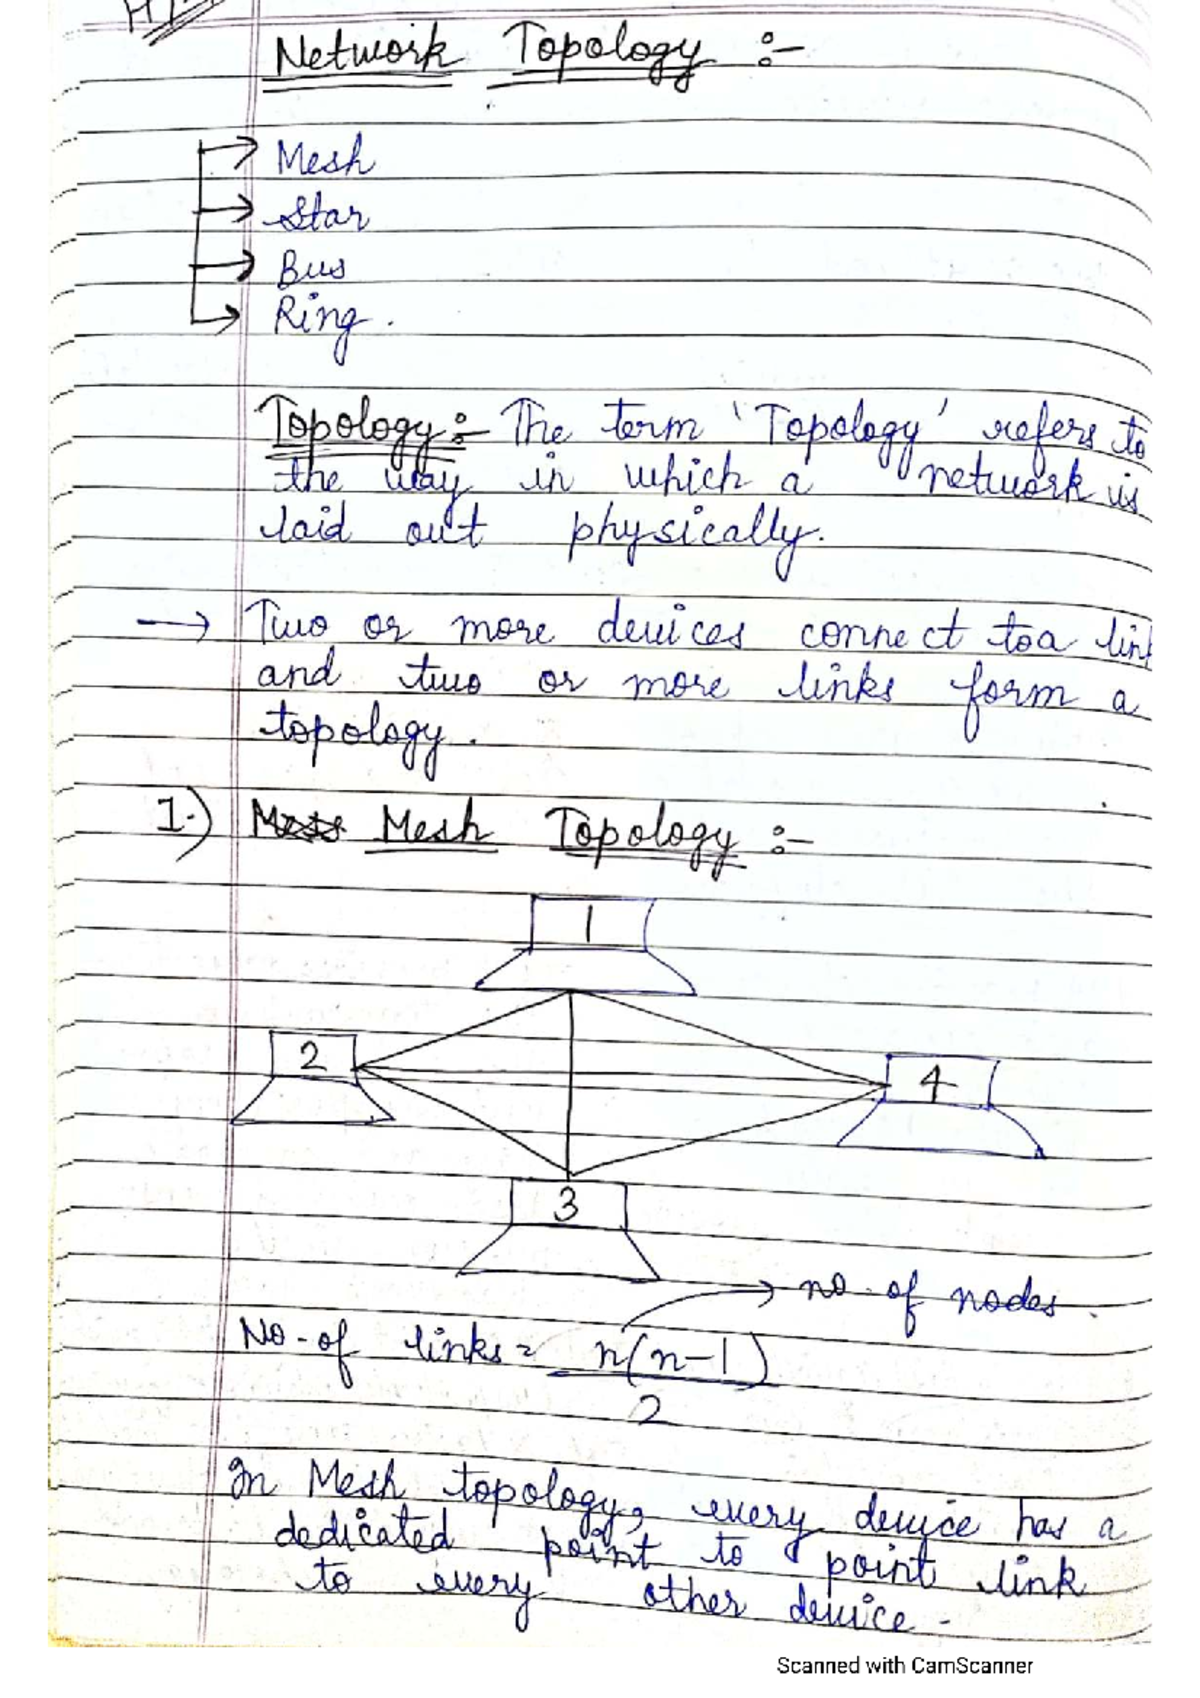 Network Topology :-
Mesh
Star
Bus
Ring.
Topology:- The term 'Topology' refers to
the way in which a network is
laid out physically.
→ Two or more devices connect to a link
and two or more links form a
topology.
1.) Mesh Topology :-
1
2
4
3
→ no. of nodes.
No. of links = n(n-1)
2
In Mesh topology, every device has a
dedicated point to point link
to every other device.
Scanned with CamScanner